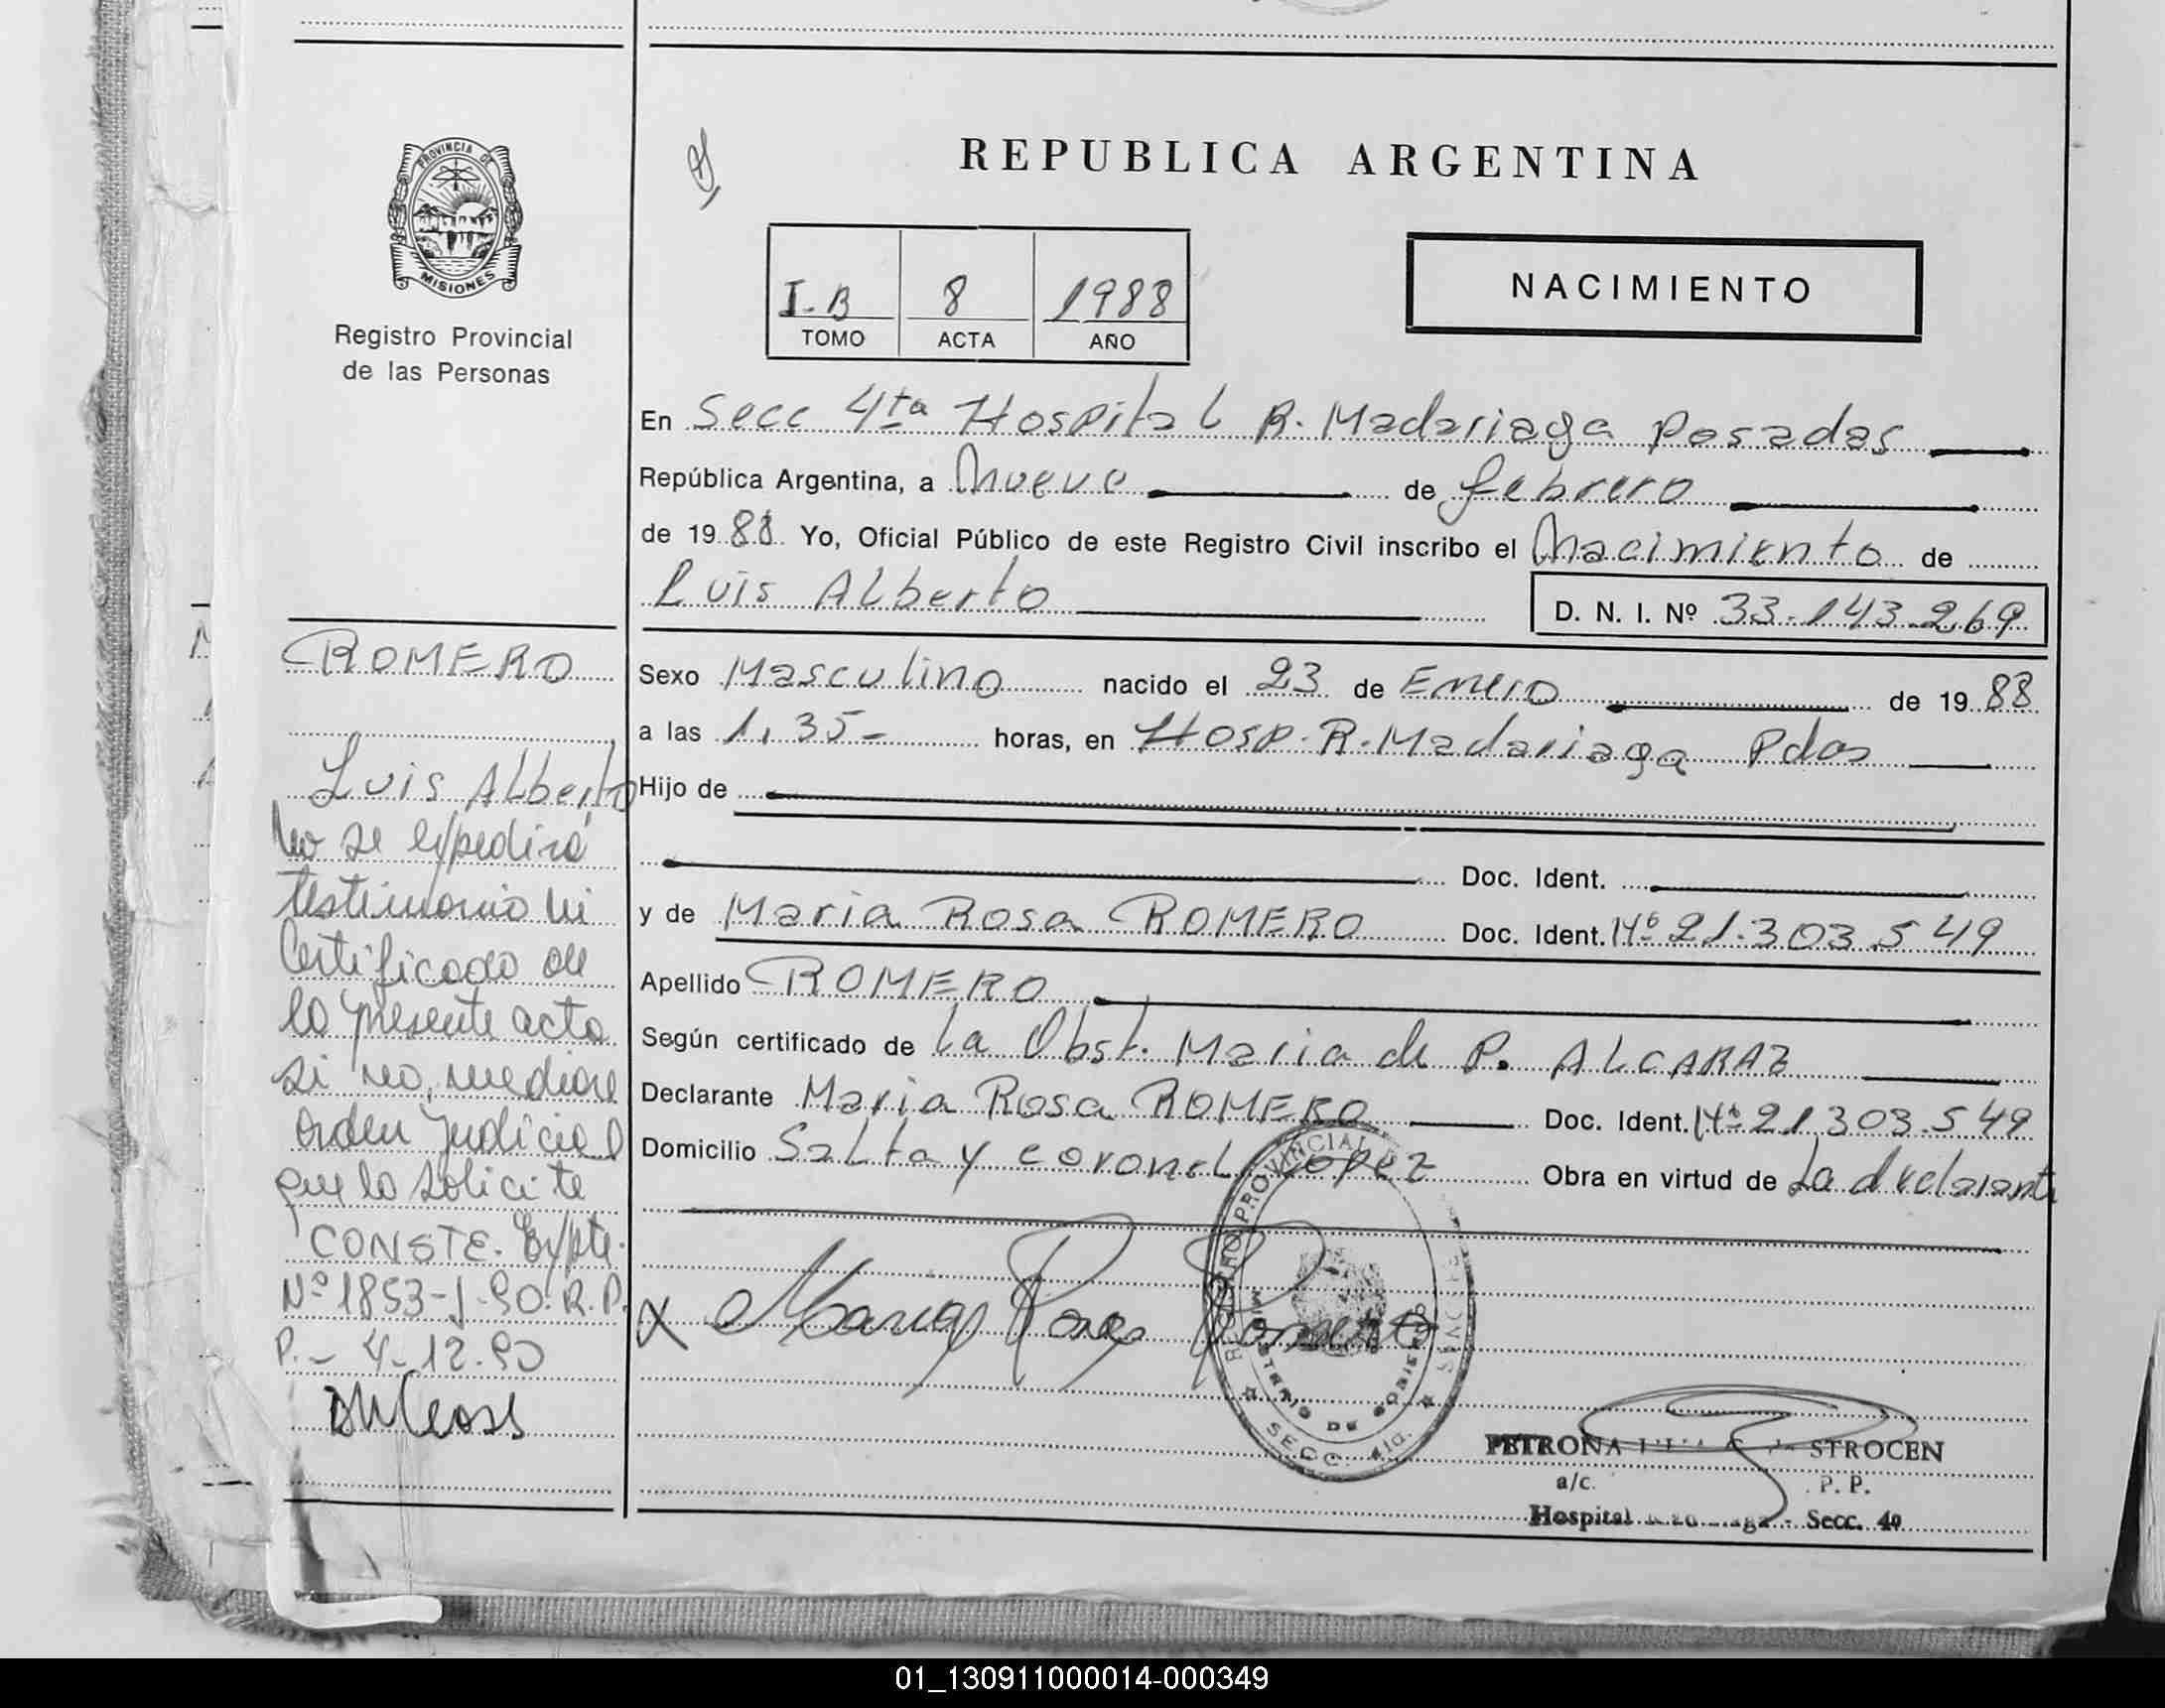 PROVINCIA DE
MISIONES
Registro Provincial
de las Personas
ROMERO
Luis Alberto
No se expedirá
testimonio ni
Certificado de
la presente acta
si no, mediare
orden judicial
que lo solicite
CONSTE. Expte.
Nº 1853-J-90. R. P.
P.- 4-12.90
REPUBLICA ARGENTINA
I-B 8 1988
TOMO ACTA AÑO
NACIMIENTO
En Secc 4ta Hospital R. Madariaga Posadas
República Argentina, a Nueve de febrero
de 19 88 Yo, Oficial Público de este Registro Civil inscribo el Nacimiento de
Luis Alberto D. N. I. Nº 33.143.269
Sexo Masculino nacido el 23 de Enero de 19 88
a las 1,35- horas, en Hosp. R. Madariaga Pdas
Hijo de
Doc. Ident.
y de Maria Rosa ROMERO Doc. Ident. Nº 21.303.549
Apellido ROMERO
Según certificado de La Obst. Maria de P. ALCARAZ
Declarante Maria Rosa ROMERO Doc. Ident. Nº 21.303.549
Domicilio Salta y coronel Lopez Obra en virtud de La declarante
x Maria Rosa Romero
REGISTRO PROVINCIAL
MINISTERIO DE GOBIERNO
SECC. 4ta.
PETRONA STROCEN
a/c. P. P.
Hospital - Secc. 4a
01_130911000014-000349